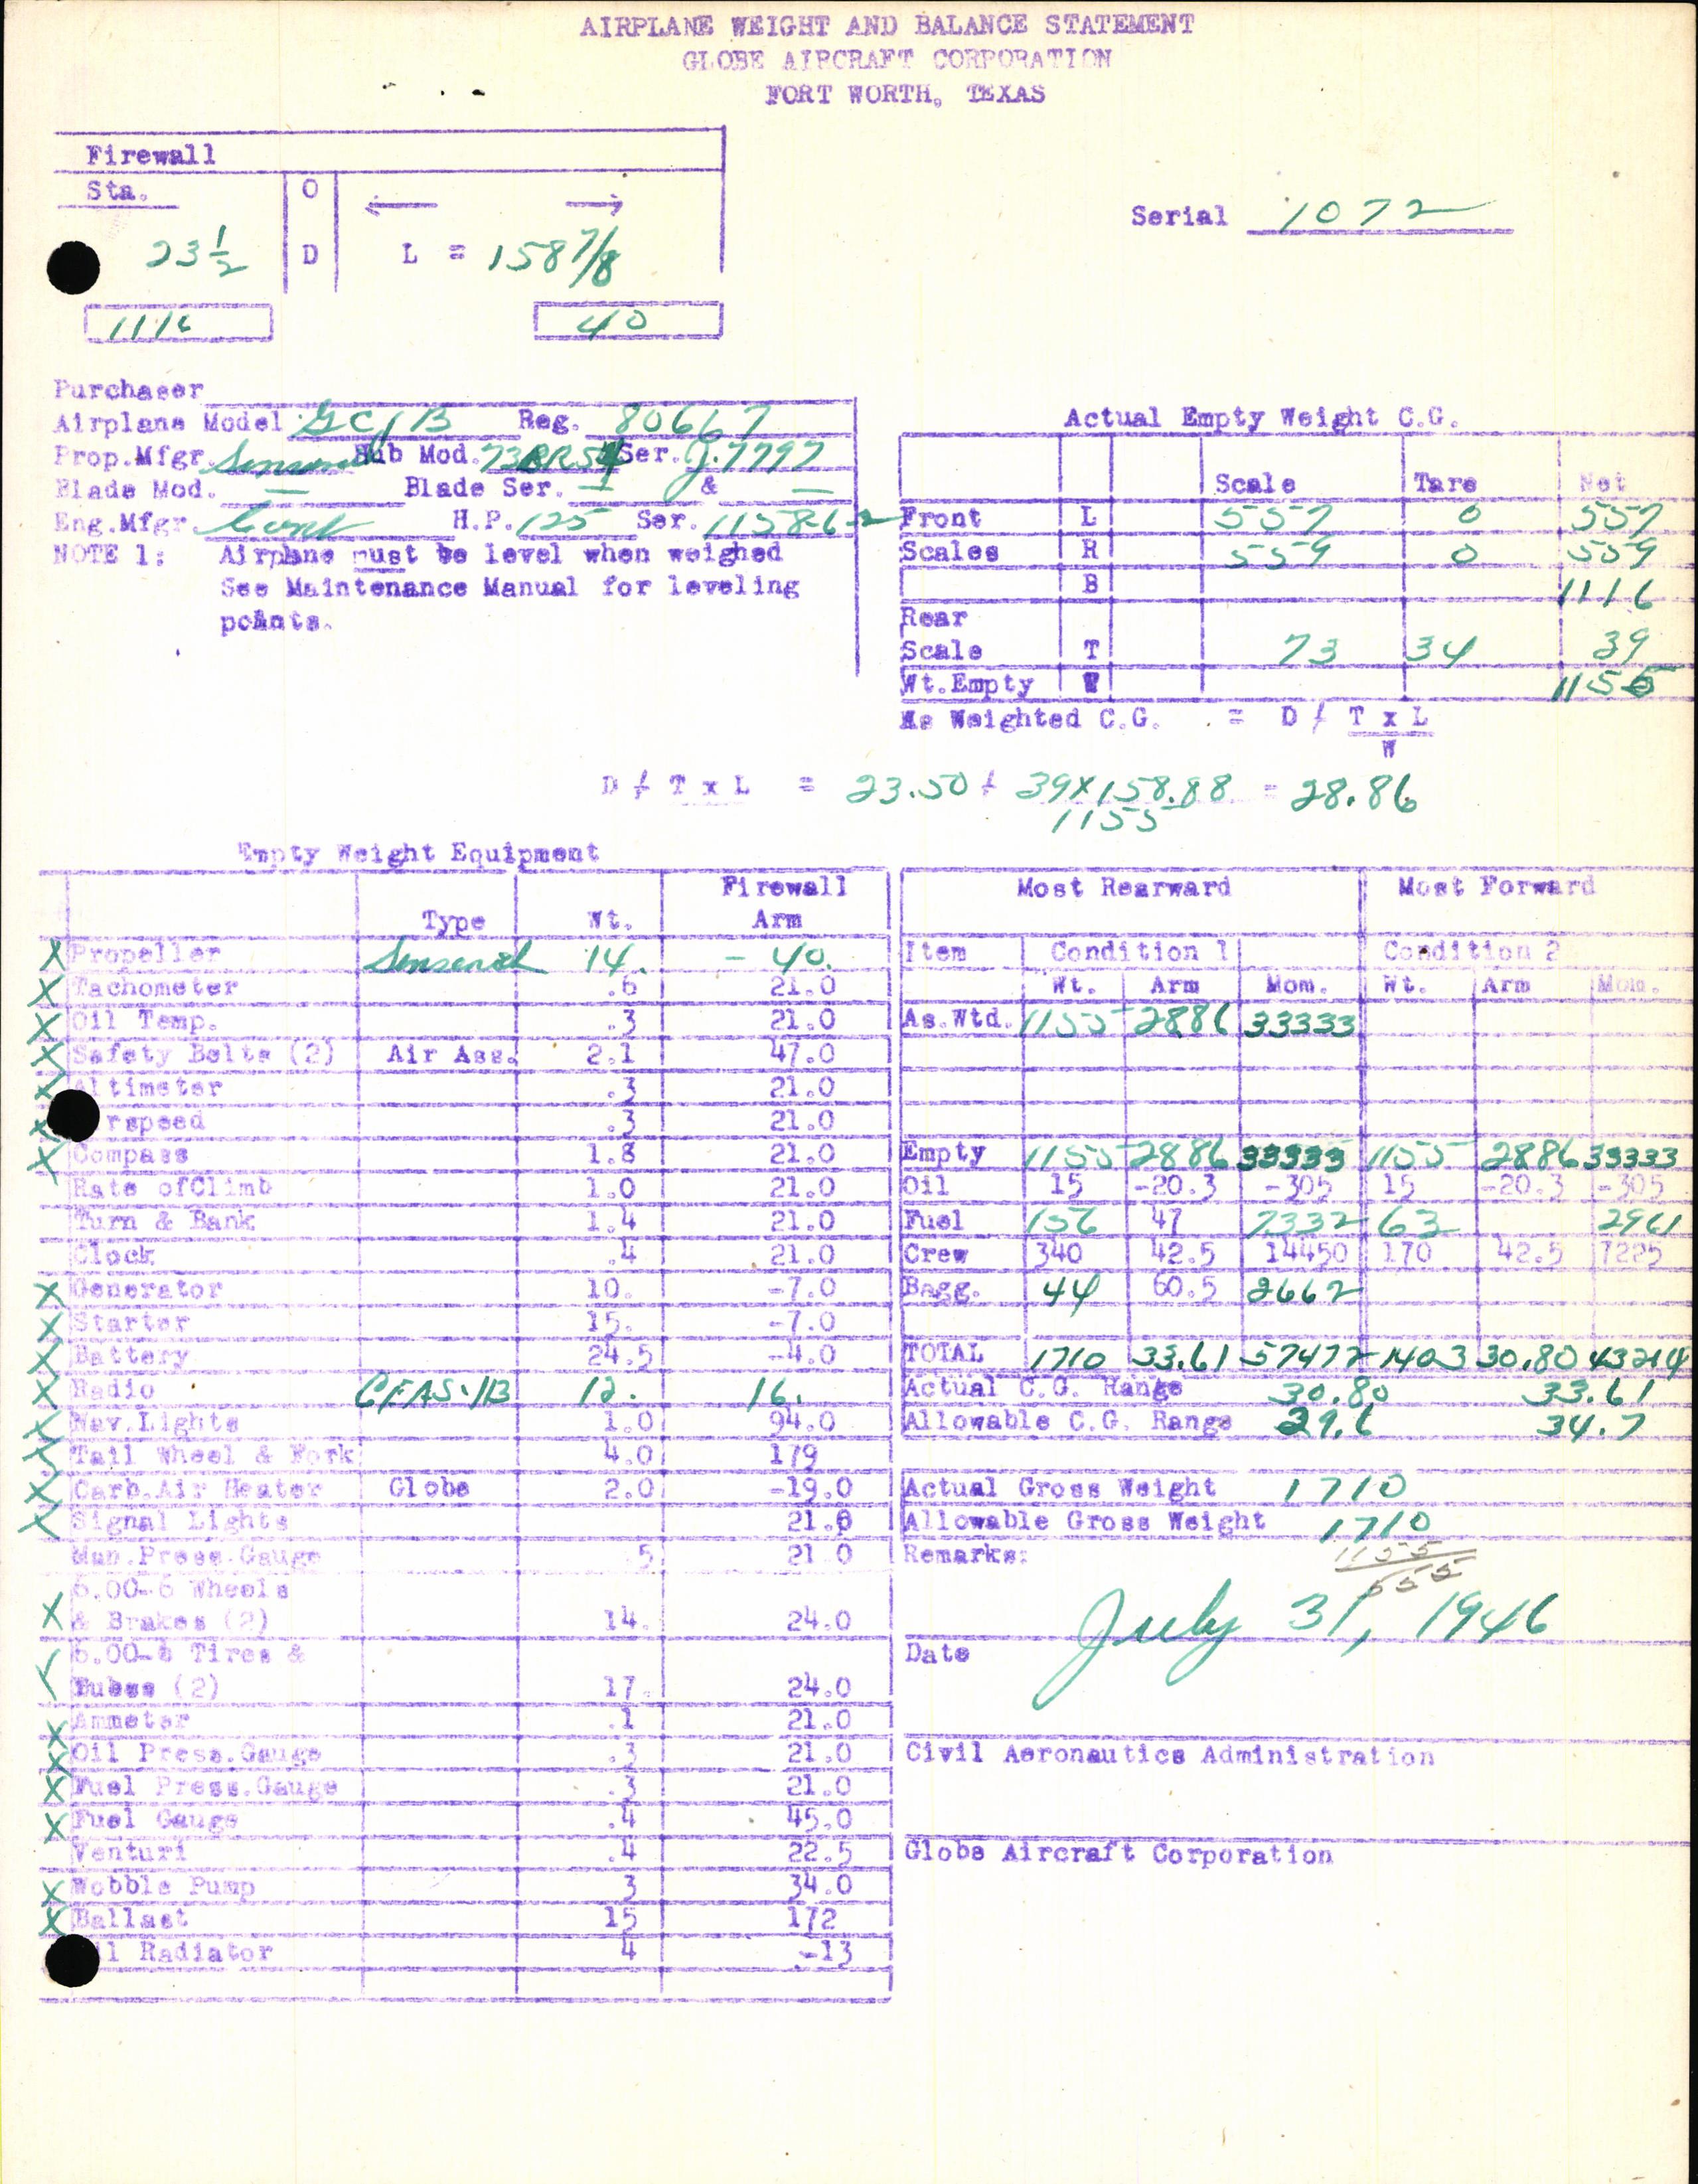 AIRPLANE WEIGHT AND BALANCE STATEMENT
GLOBE AIRCRAFT CORPORATION
FORT WORTH, TEXAS
Firewall
Sta. O
23 1/2 D L = 158 7/8
1116 40
Serial 1072
Purchaser
Airplane Model GC1B Reg. 80667
Prop.Mfgr. Hub Mod. Ser. J.7797
Blade Mod. — Blade Ser. — & —
Eng.Mfgr. Cont H.P. 125 Ser. 11586-2
NOTE 1: Airplane must be level when weighed
See Maintenance Manual for leveling
points.
Actual Empty Weight C.G.
Scale Tare Net
Front L 557 0 557
Scales R 559 0 559
B 1116
Rear
Scale T 73 34 39
Wt.Empty W 1155
As Weighted C.G. = D / T x L
W
D / T x L = 23.50 + 39 X 158.88 = 28.86
1155
Empty Weight Equipment
Type Wt. Firewall Arm
X Propeller Sensenich 14. - 40.
X Tachometer .6 21.0
X Oil Temp. .3 21.0
X Safety Belts (2) Air Ass. 2.1 47.0
X Altimeter .3 21.0
X rspeed .3 21.0
X Compass 1.8 21.0
Rate ofClimb 1.0 21.0
Turn & Bank 1.4 21.0
Clock .4 21.0
X Generator 10. -7.0
X Starter 15. -7.0
X Battery 24.5 -4.0
X Radio 12. 16.
X Nav.Lights 1.0 94.0
X Tail Wheel & Fork 4.0 179
X Carb.Air Heater Globe 2.0 -19.0
X Signal Lights 21.0
Man.Press.Gauge 5 21 0
6.00-6 Wheels
X & Brakes (2) 14. 24.0
6.00-6 Tires &
Tubes (2) 17. 24.0
X Ammeter .1 21.0
X Oil Press.Gauge .3 21.0
X Fuel Press.Gauge .3 21.0
X Fuel Gauge .4 45.0
Venturi .4 22.5
X Wobble Pump 3 34.0
X Ballast 15 172
il Radiator 4 -13
Most Rearward Most Forward
Item Condition 1 Condition 2
Wt. Arm Mom. Wt. Arm Mom.
As.Wtd. 1155 2886 33333
Empty 1155 2886 33333 1155 2886 33333
Oil 15 -20.3 -305 15 -20.3 -305
Fuel 156 47 7332 63 2961
Crew 340 42.5 14450 170 42.5 7225
Bagg. 44 60.5 2662
TOTAL 1710 33.61 57472 1403 30.80 43214
Actual C.G. Range 30.80 33.61
Allowable C.G. Range 29.6 34.7
Actual Gross Weight 1710
Allowable Gross Weight 1710
Remarks: 1155
555
July 31, 1946
Date
Civil Aeronautics Administration
Globe Aircraft Corporation